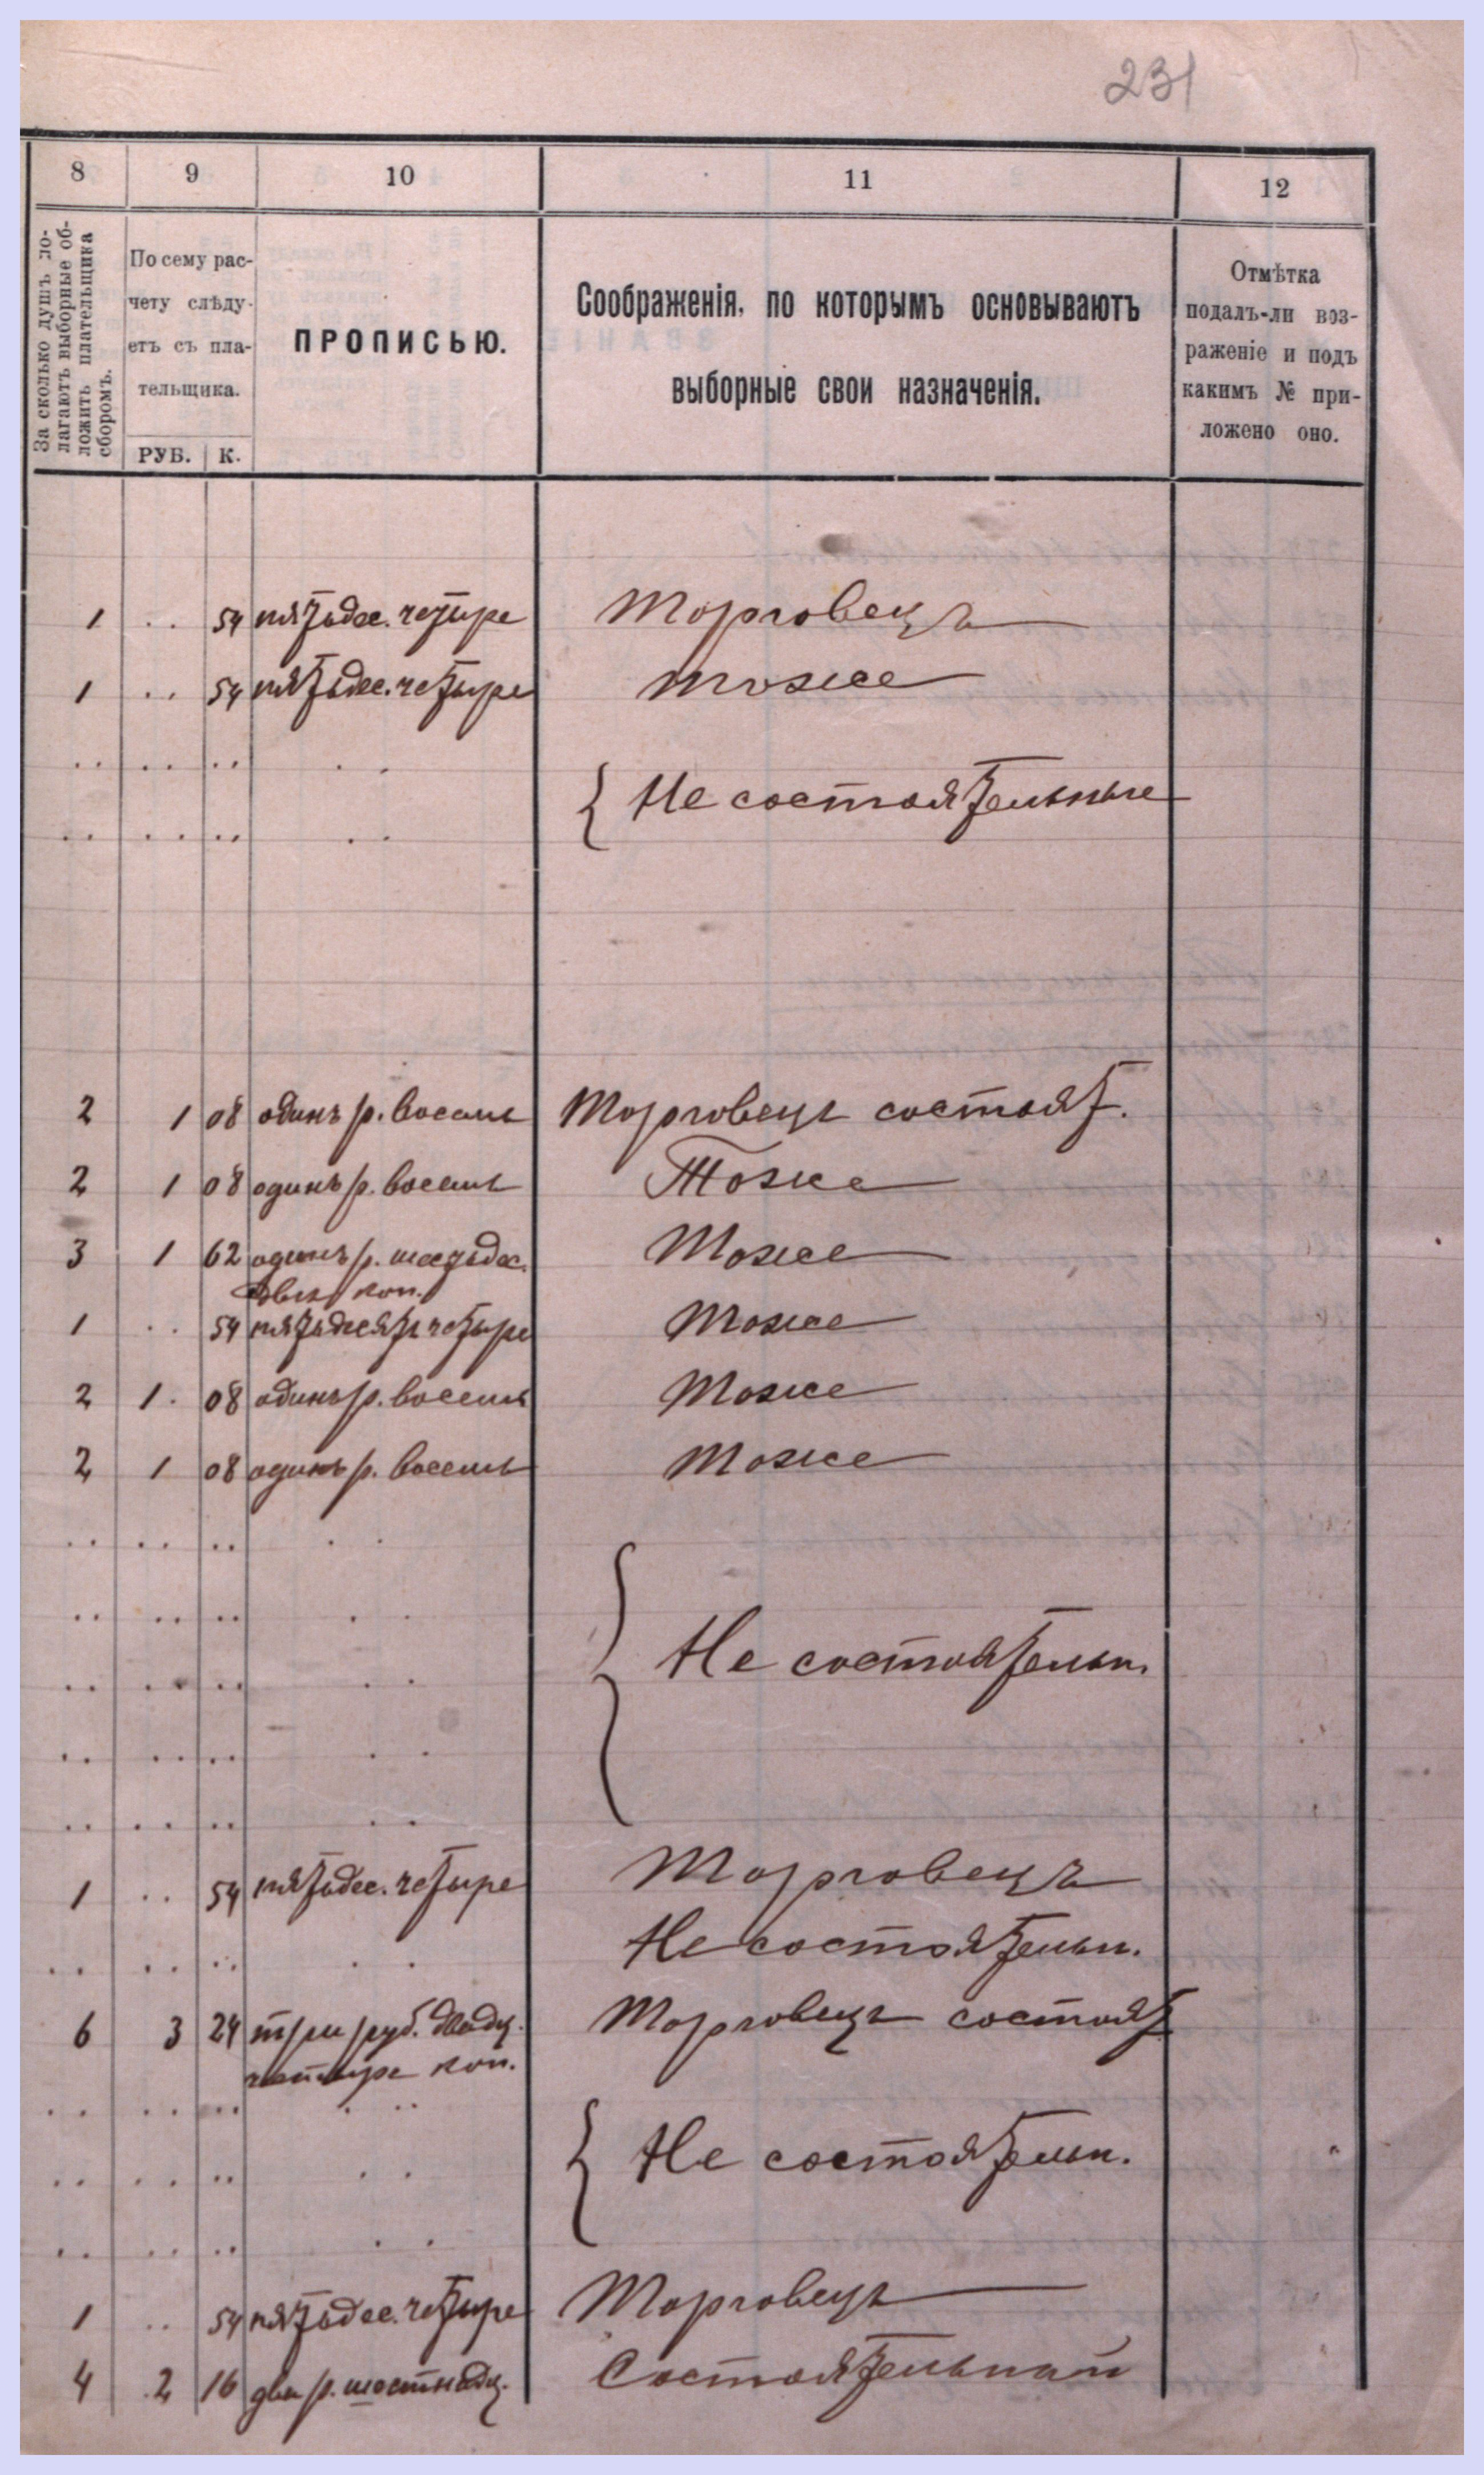 231
8 9 10 11 12
За сколько душъ по-
лагаютъ выборные об-
ложить плательщика
сборомъ.
По сему рас-
чету слѣду-
етъ съ пла-
тельщика.
РУБ. К.
ПРОПИСЬЮ.
Соображенія, по которымъ основываютъ
выборные свои назначенія.
Отмѣтка
подалъ-ли воз-
раженіе и подъ
какимъ № при-
ложено оно.
1 .. 54 пятьдес. четыре Торговецъ
1 .. 54 пятьдес. четыре тоже
.. .. .. . .
{ Не состоятельные
.. .. .. . .
2 1 08 одинъ р. восемь Торговецъ состоят.
2 1 08 одинъ р. восемь Тоже
3 1 62 одинъ р. шестьдес. Тоже
двѣ коп.
1 .. 54 пятьдесятъ четыре Тоже
2 1. 08 одинъ р. восемь Тоже
2 1 08 одинъ р. восемь Тоже
.. .. .. . .
.. .. .. . .
{ Не состоятельн.
.. .. .. . .
.. .. .. . .
.. .. .. . .
1 .. 54 пятьдес. четыре Торговецъ
.. .. .. . . Не состоятельн.
6 3 24 три руб. двадц. Торговецъ состоят
четыре коп.
.. .. .. . ..
{ Не состоятельн.
.. .. .. . .
.. .. .. . .
1 .. 54 пятьдес. четыре Торговецъ
4 2 16 два р. шестнадц. Состоятельный